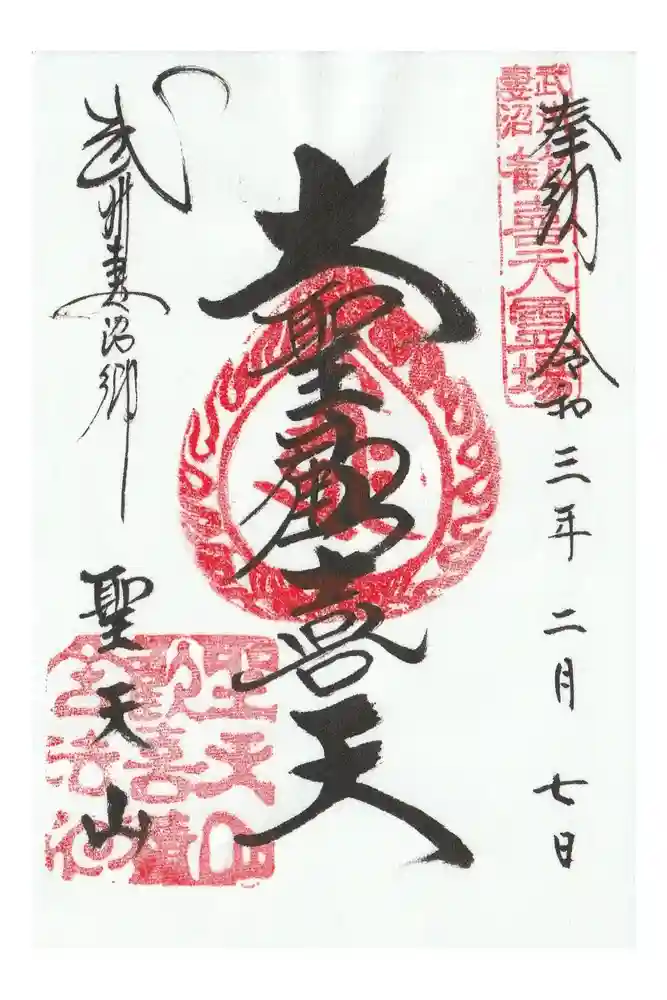 奉納 令和三年二月七日
大聖歓喜天
武州妻沼郷
聖天山
武州
妻沼
歓喜天霊場
聖天山
歓喜